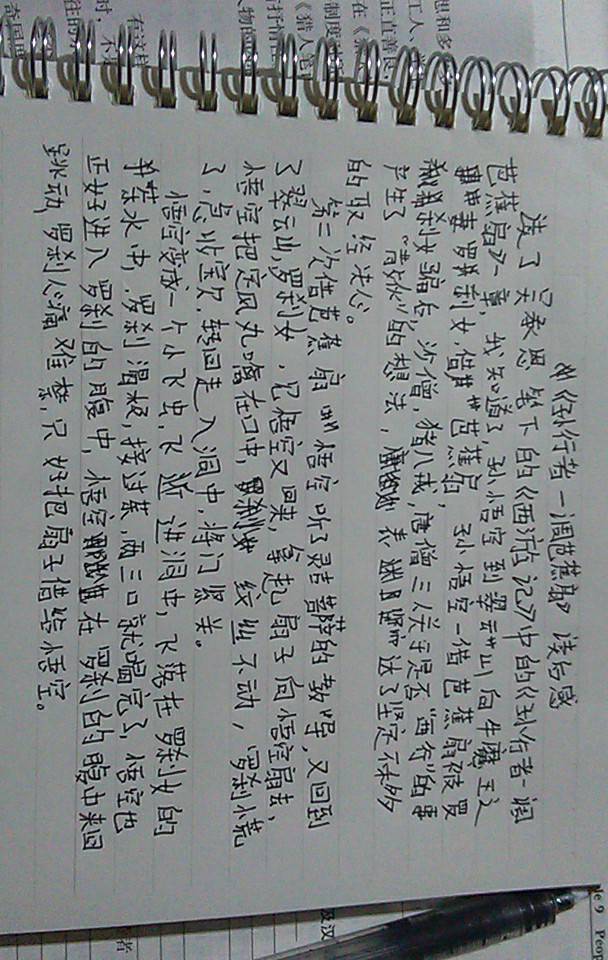 《孙行者一调芭蕉扇》读后感
读了吴承恩笔下的《西游记》中的《孙行者一调
芭蕉扇》一章，我知道了，孙悟空到翠云山向牛魔王之
妻罗刹女，借芭蕉扇，孙悟空一借芭蕉扇被罗
刹女骗后，沙僧，猪八戒，唐僧三人关于是否"西行"的事
产生了"散伙"的想法，表达了坚定不移
的取经决心。
第二次借芭蕉扇 悟空听了灵吉菩萨的教导，又回到
了翠云山，罗刹女，见悟空又回来，拿起扇子向悟空扇去，
悟空把定风丸噙在口中，纹丝不动，罗刹心慌
了，急收宝贝，转回走入洞中，将门紧关。
悟空变成一个小飞虫，飞进洞中，飞落在罗刹女的
茶水中，罗刹渴极，接过茶，两三口就喝完了，悟空也
正好进入罗刹的腹中，悟空在罗刹的腹中来回
跳动，罗刹心痛难禁，只好把扇子借给悟空。